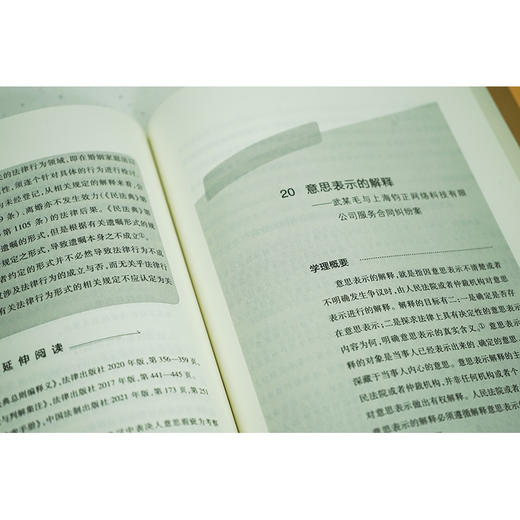 关的法律行为领域，即在婚姻家庭领
性，须逐个针对具体的行为进行检讨
未经登记，从相关规定的解释来看，
9条）、离婚亦不发生效力（《民法典》第
1105条）的法律后果。《民法典》
遗嘱的形式，但是根据有关遗嘱形式的
规定之形式，导致遗嘱本身之不成立
者约定的形式并不必然导致法律行为不
涉及法律行为的成立与否，而无关乎法律行
有关法律行为形式的相关规定不应认定为关
延伸阅读
典总则编释义》，法律出版社2020年版，第356—359页。
与判解集注》，法律出版社2017年版，第441—445页。
册》，中国法制出版社2021年版，第173页，第251
中表决人意思瑕疵为考察
20 意思表示的解释
——武某毛与上海钧正网络科技有限
公司服务合同纠纷案
学理概要
意思表示的解释，就是指因意思表示不清楚或者
不明确发生争议时，由人民法院或者仲裁机构对意思
表示进行的解释。解释的目标有二：一是确定是否存
在意思表示；二是探求法律上具有决定性的意思表示
内容为何，明确意思表示的真实含义。①意思表示
的对象是当事人已经表示出来的、确定的意思，
探藏于当事人内心的意思。意思表示解释的主
民法院或者仲裁机构，并非任何机构或者个
对意思表示做出有权解释。人民法院或者
意思表示的解释必须遵循解释意思表示